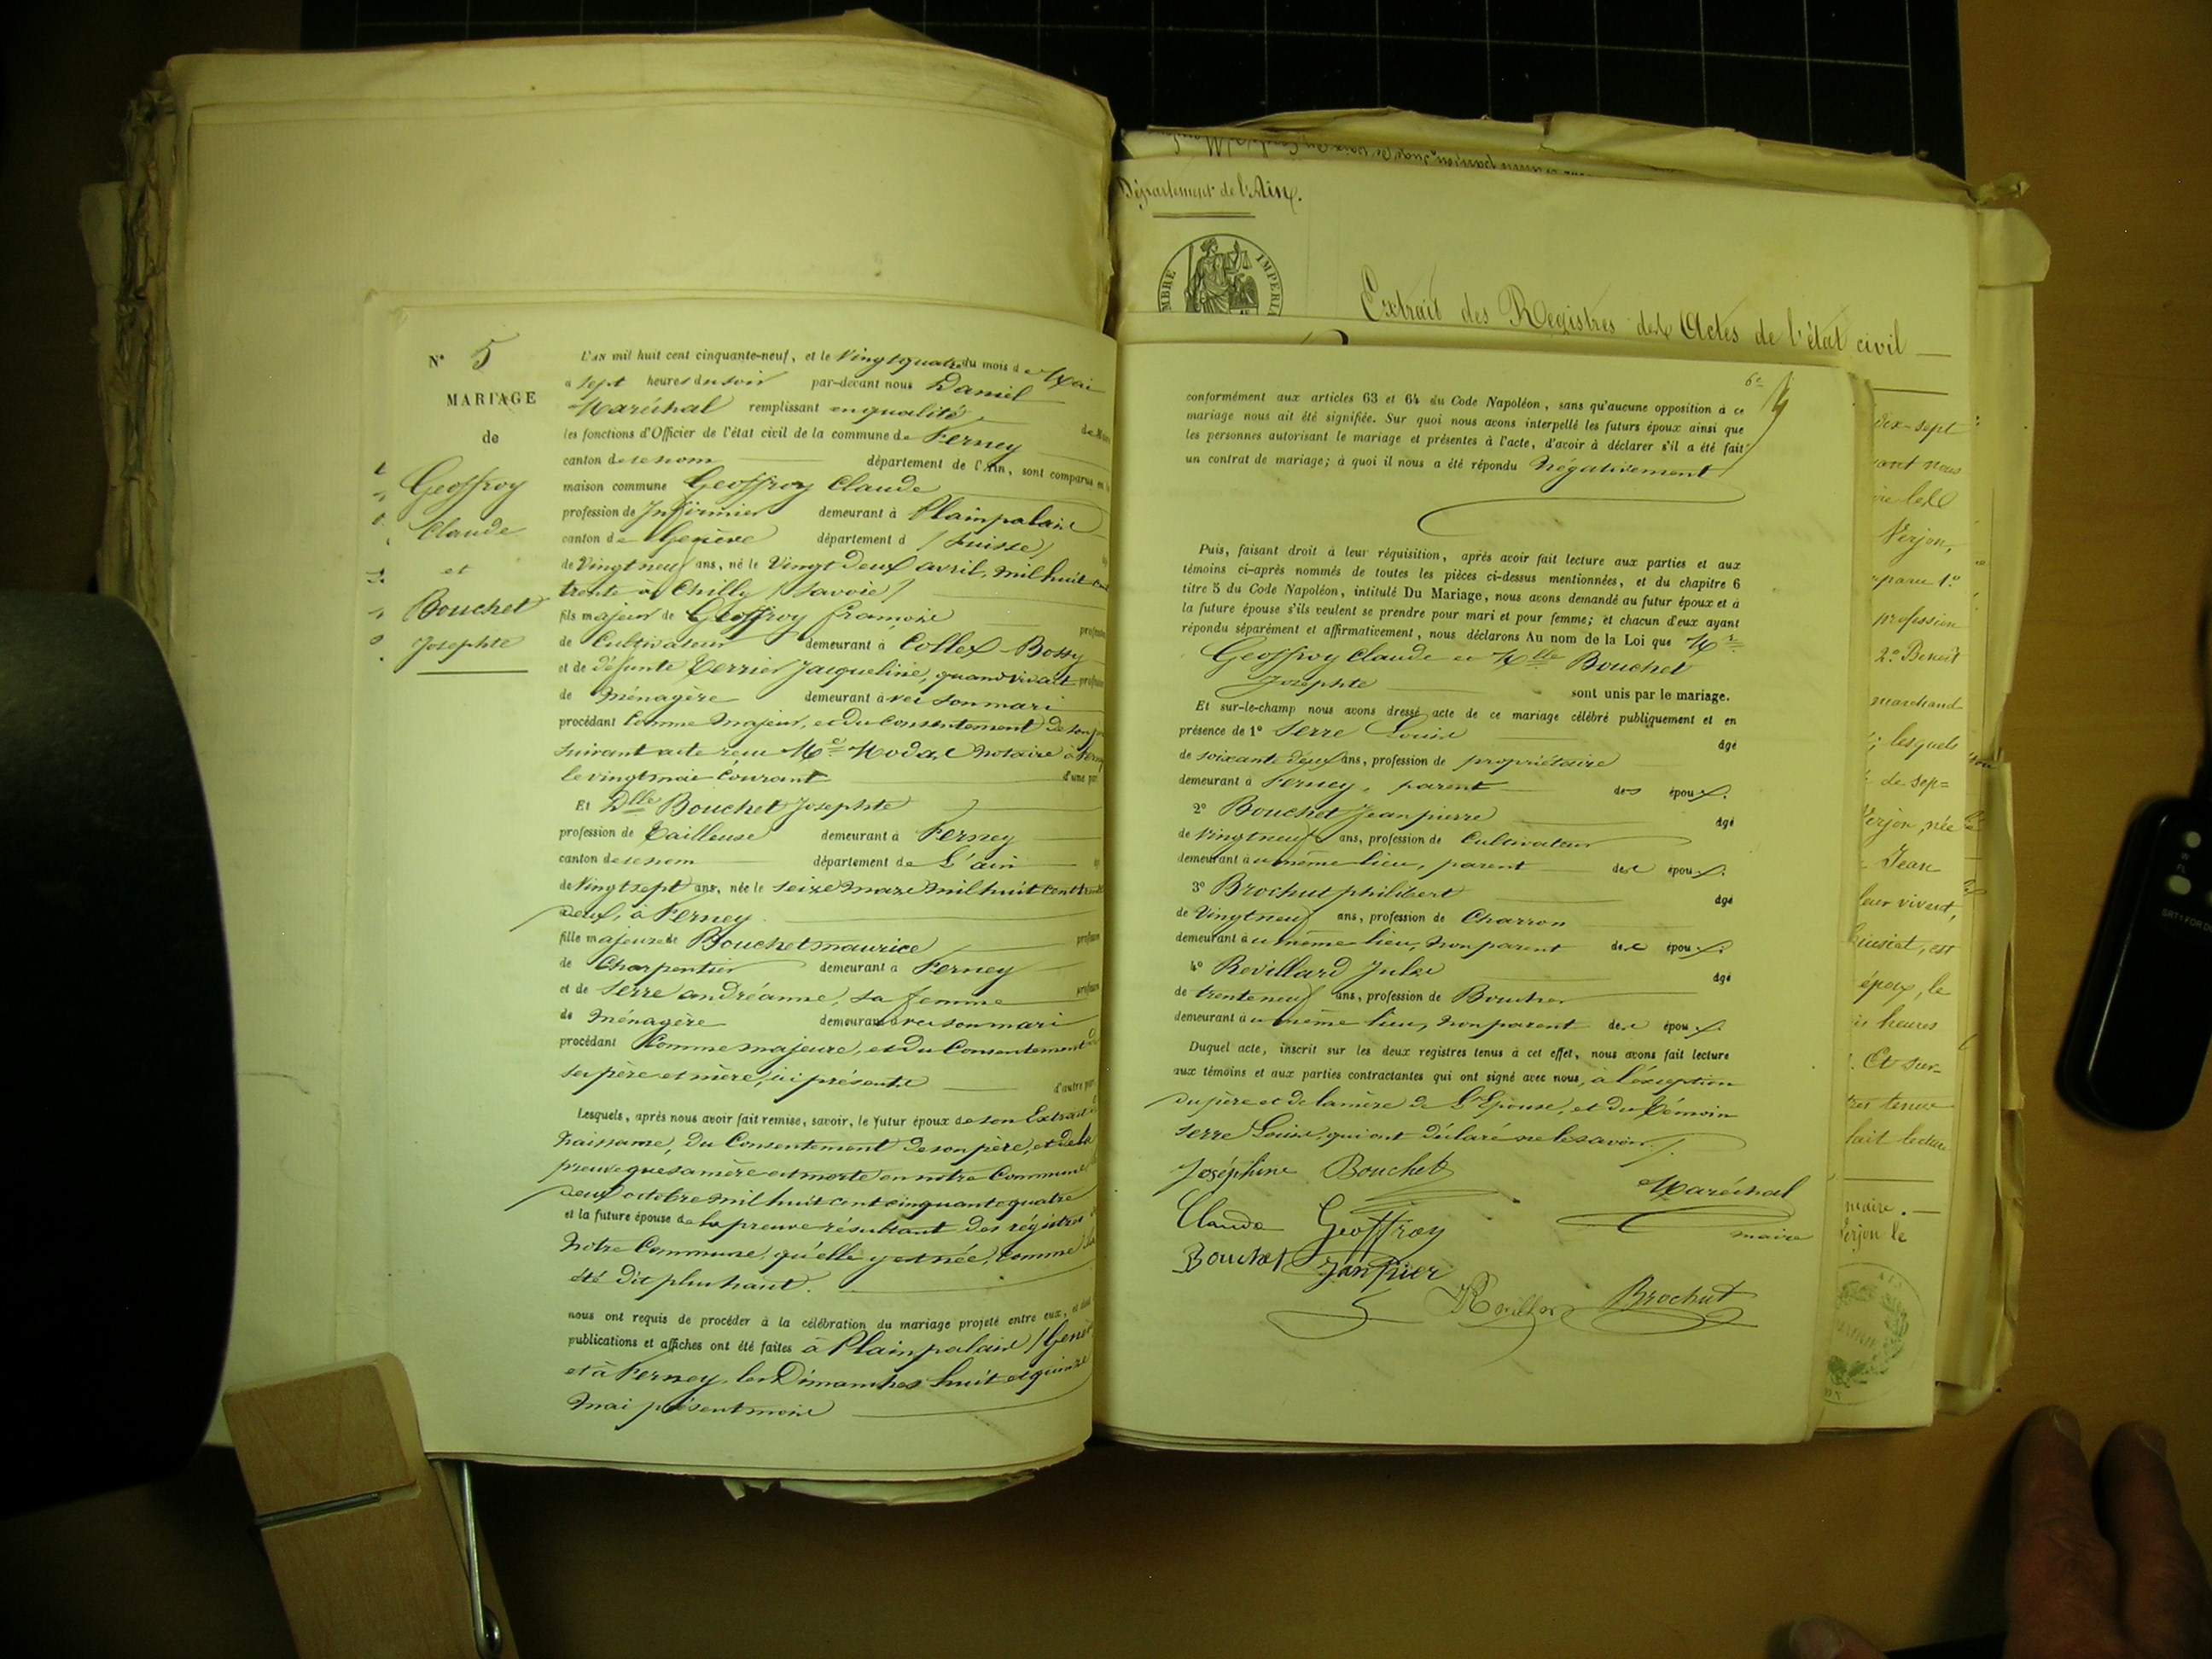 N° 5
MARIAGE
de
Geoffroy
Claude
et
Bouchet
Josephte
L'AN mil huit cent cinquante-neuf, et le Vingtquatre du mois de Mai
à sept heures du soir par-devant nous Daniel
Maréchal remplissant en qualité de Maire
les fonctions d'Officier de l'état civil de la commune de Ferney
canton de ce nom département de l'Ain, sont comparus en la
maison commune Geoffroy Claude
profession de Infirmier demeurant à Plainpalais
canton de Genève département d (Suisse)
de Vingt neuf ans, né le Vingt Deux avril, mil huit cent
trente à Chilly (Savoie)
fils majeur de Geoffroy françois profession
de Cultivateur demeurant à Collex-Bossy
et de défunte Terrier Jacqueline, quand vivait profession
de Ménagère demeurant avec son mari
procédant Comme Majeur, et du Consentement de son père
suivant acte reçu Me notaire à Ferney
le vingt mai Courant d'une part
Et Dlle Bouchet Josephte
profession de Tailleuse demeurant à Ferney
canton de ce nom département de L'ain
de Vingt sept ans, née le seize mars mil huit cent trente
deux, à Ferney
fille majeure de Bouchet maurice profession
de Charpentier demeurant à Ferney
et de Serre andréanne, sa femme profession
de Ménagère demeurant avec son mari
procédant Comme majeure, et du Consentement de
ses père et mère, ici présents d'autre part
Lesquels, après nous avoir fait remise, savoir, le futur époux de son Extrait de
Naissance, du Consentement de son père, et de la
preuve que sa mère est morte en notre Commune le
deux octobre mil huit cent cinquante quatre
et la future épouse de la preuve résultant des régistres de
Notre Commune, qu'elle y est née, Comme il a
été dit plus haut.
nous ont requis de procéder à la célébration du mariage projeté entre eux, et dont
publications et affiches ont été faites à Plainpalais (Genève
et à Ferney, les Dimanches huit et quinze
Mai présent mois
Département de l'Ain.
TIMBRE IMPERIAL
Extrait des Registres des Actes de l'état civil
6e
conformément aux articles 63 et 64 du Code Napoléon, sans qu'aucune opposition à ce
mariage nous ait été signifiée. Sur quoi nous avons interpellé les futurs époux ainsi que
les personnes autorisant le mariage et présentes à l'acte, d'avoir à déclarer s'il a été fait
un contrat de mariage; à quoi il nous a été répondu Négativement
Puis, faisant droit à leur réquisition, après avoir fait lecture aux parties et aux
témoins ci-après nommés de toutes les pièces ci-dessus mentionnées, et du chapitre 6
titre 5 du Code Napoléon, intitulé Du Mariage, nous avons demandé au futur époux et à
la future épouse s'ils veulent se prendre pour mari et pour femme; et chacun d'eux ayant
répondu séparément et affirmativement, nous déclarons Au nom de la Loi que Mr
Geoffroy Claude et Mlle Bouchet
Josephte sont unis par le mariage.
Et sur-le-champ nous avons dressé acte de ce mariage célébré publiquement et en
présence de 1° Serre Louis âgé
de soixante deux ans, profession de propriétaire
demeurant à Ferney, parent des époux.
2° Bouchet Jeanpierre âgé
de Vingtneuf ans, profession de Cultivateur
demeurant au même lieu, parent des époux.
3° Brochut philibert âgé
de Vingtneuf ans, profession de Charron
demeurant au même lieu, non parent des époux.
4° Revillard Jules âgé
de trenteneuf ans, profession de Boucher
demeurant au même lieu, non parent des époux.
Duquel acte, inscrit sur les deux registres tenus à cet effet, nous avons fait lecture
aux témoins et aux parties contractantes qui ont signé avec nous, à l'exception
du père et de la mère de l'Epouse, et du témoin
Serre Louis, qui ont déclaré ne le savoir.
Joséphine Bouchet
Maréchal
Claude Geoffroy
maire
Bouchet Janpier
Brochut
dix-sept
Verjon,
profession
2° Benoit
marchand
lesquels
de sep=
Verjon, née
Jean
leur vivant,
époux, le
heures
Et sur-
tenus
fait lecture
maire.
Verjon le